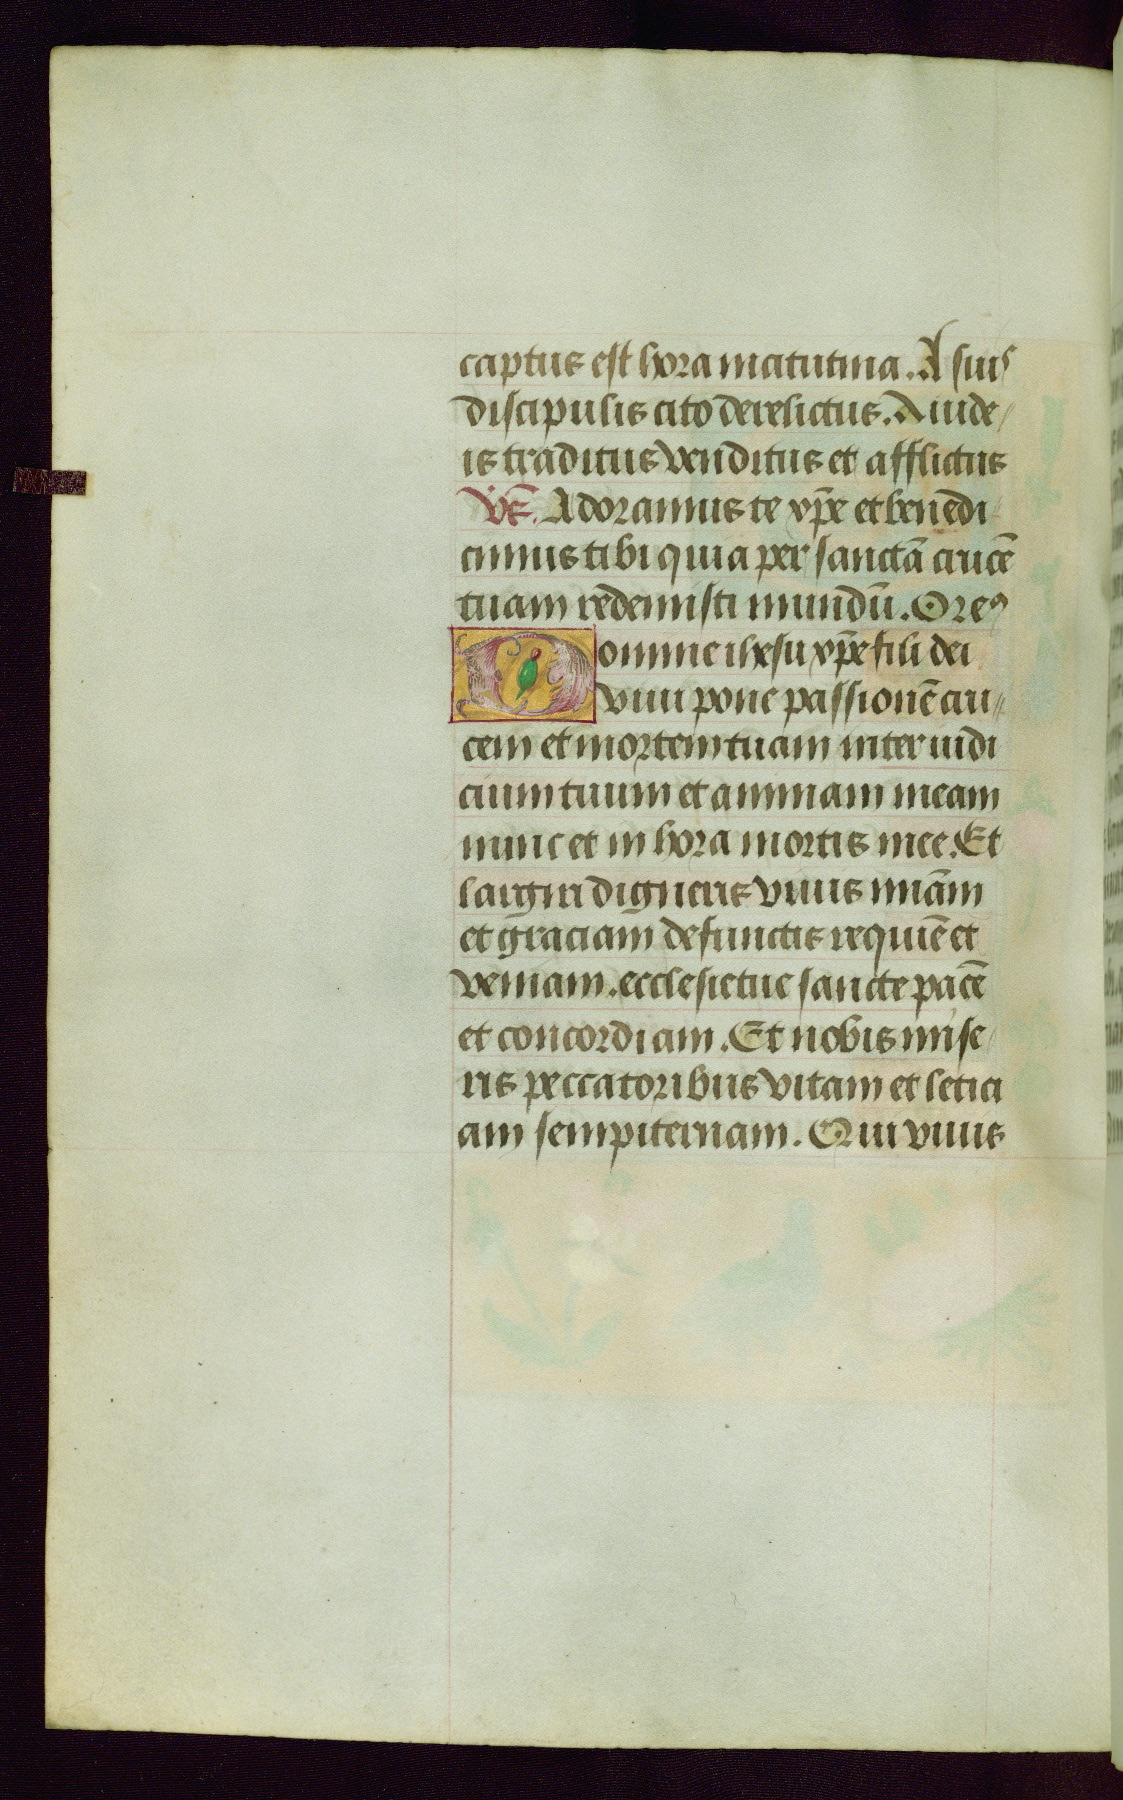 captus est hora matutina. A suis
discipulis cito derelictus. A iude
is traditus venditus et afflictus
Vẽ. Adoramus te xp̃e et benedi
cimus tibi quia per sanctã crucẽ
tuam redemisti mundũ. Oreꝰ
Domine ihesu xp̃e fili dei
viui pone passionẽ cru
cem et mortem tuam inter iudi
cium tuum et animam meam
nunc et in hora mortis mee. Et
largiri digneris viuis mĩam
et graciam defunctis requiẽ et
veniam. ecclesie tue sancte pacẽ
et concordiam. Et nobis mise
ris peccatoribus vitam et leticı
am sempiternam. Qui viuis